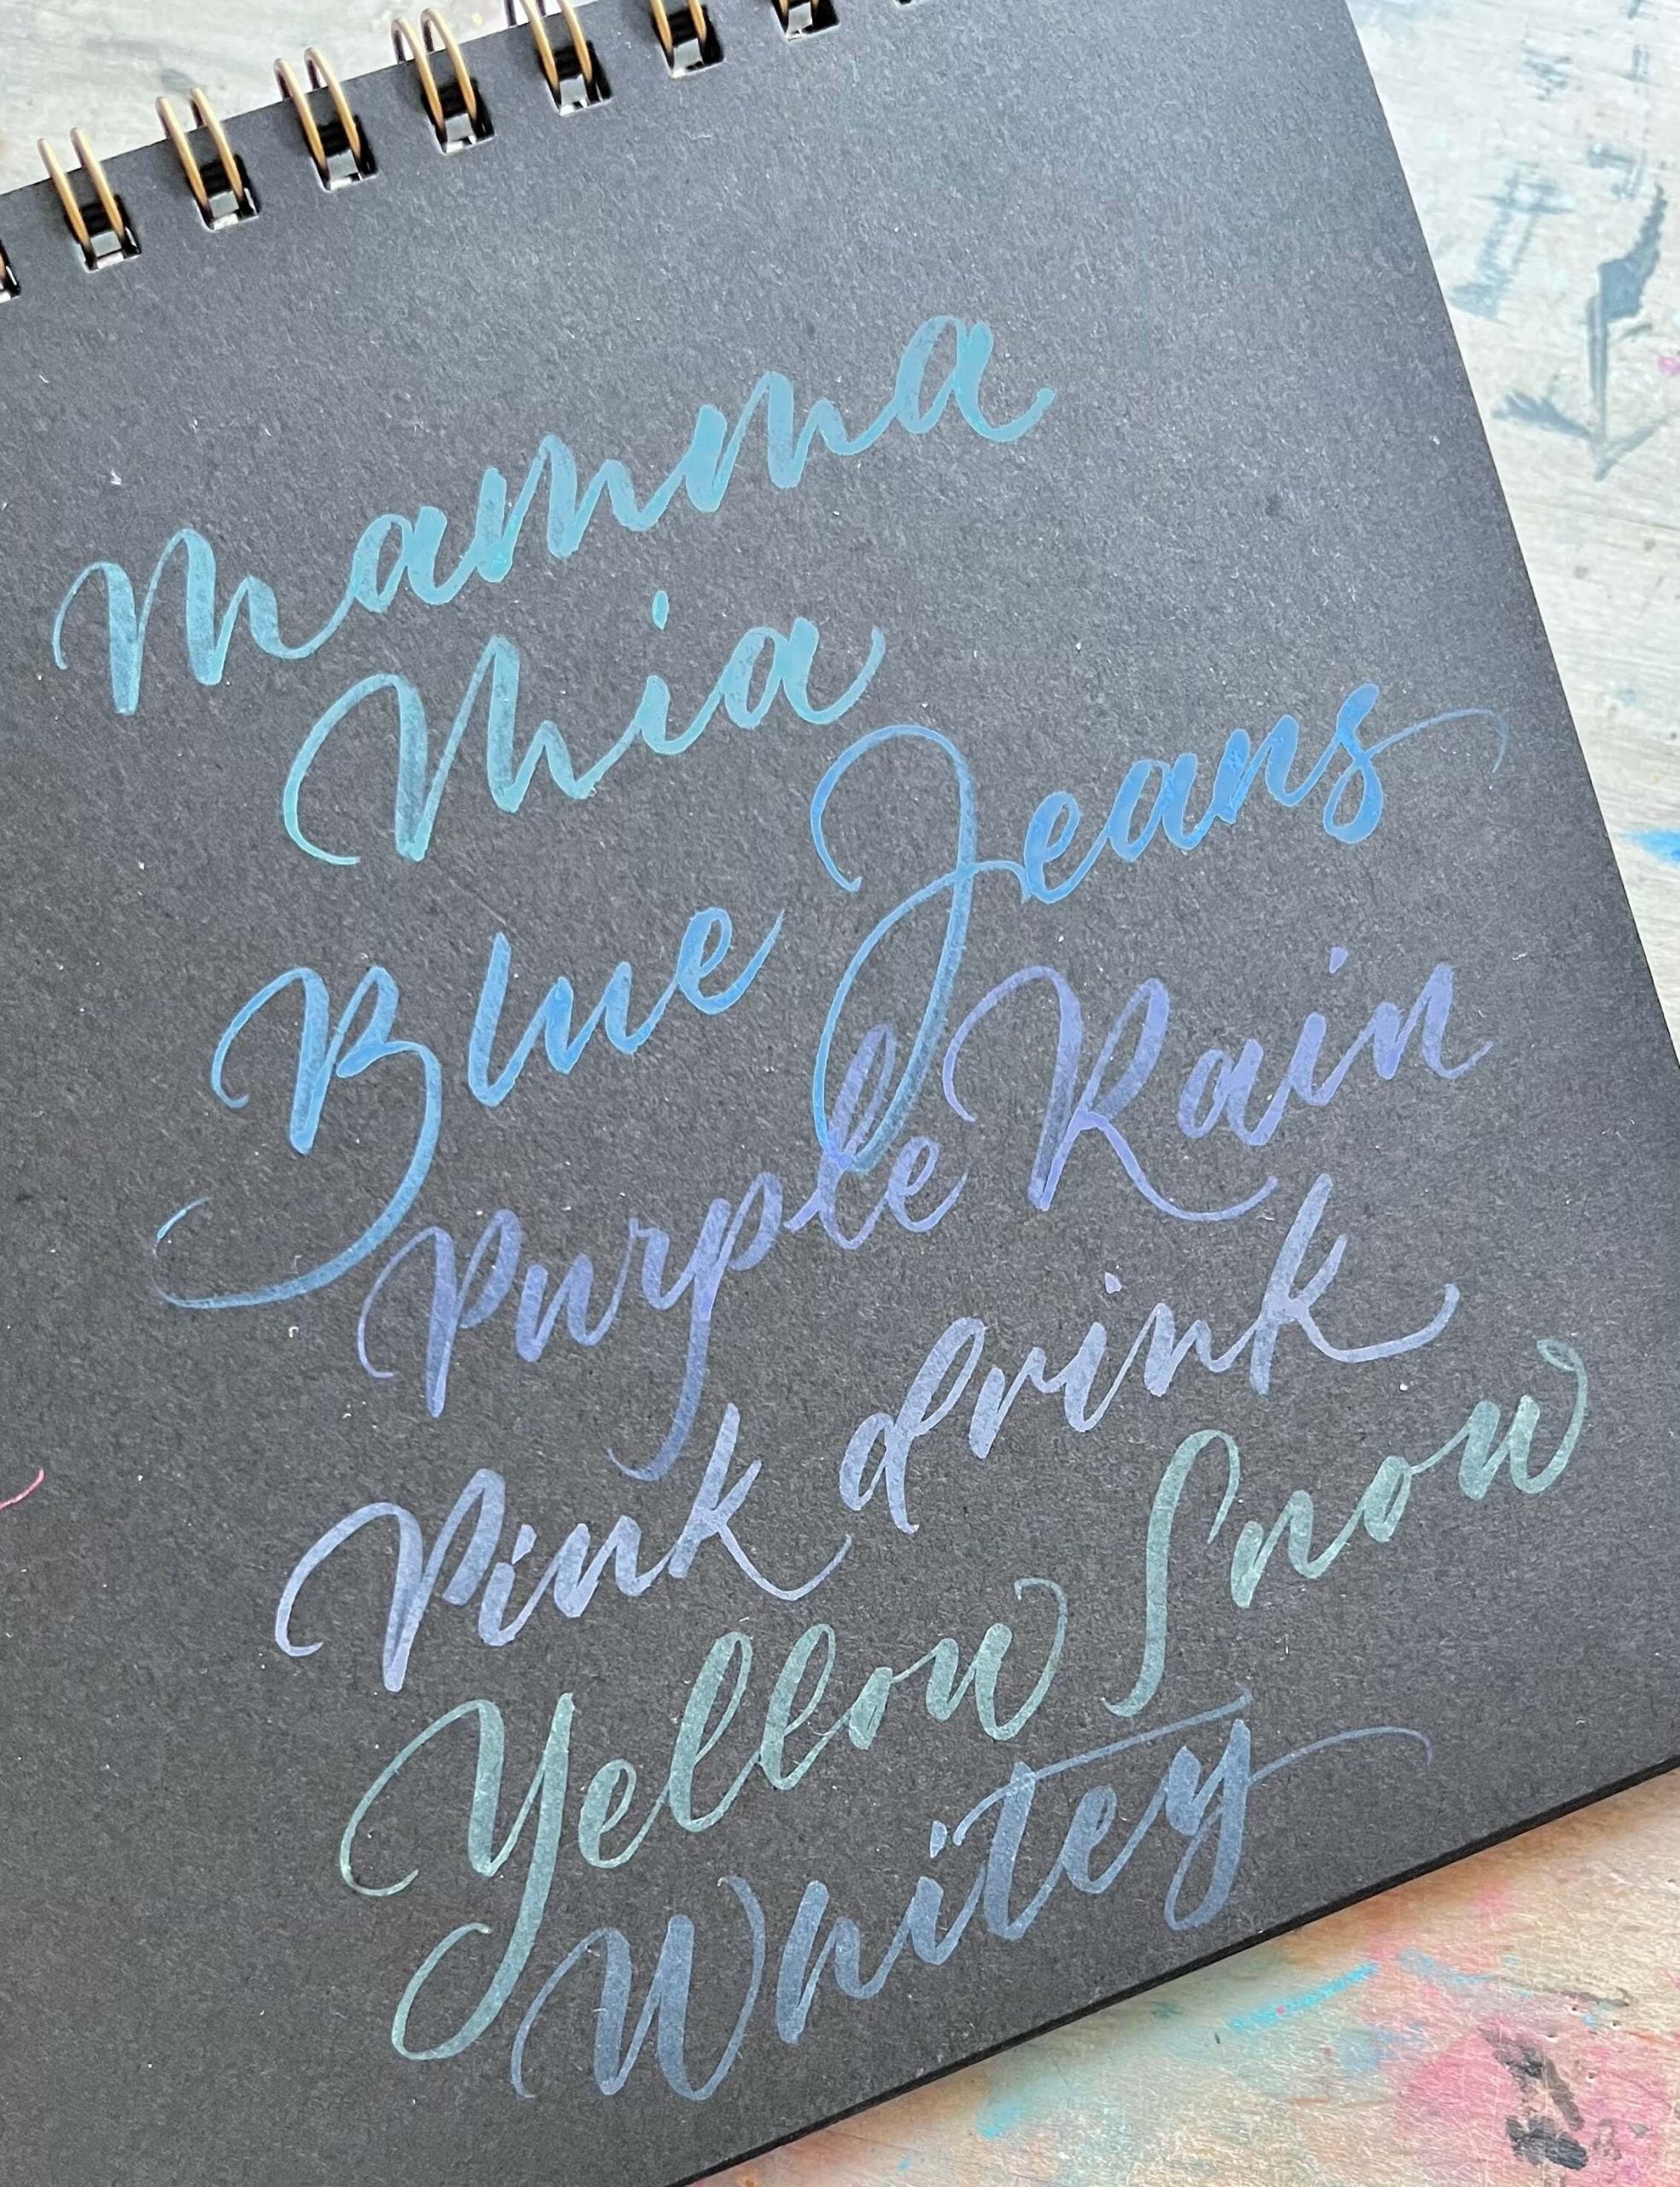 Mamma
Mia
Blue Jeans
Purple Rain
Pink drink
Yellow Snow
Whitey